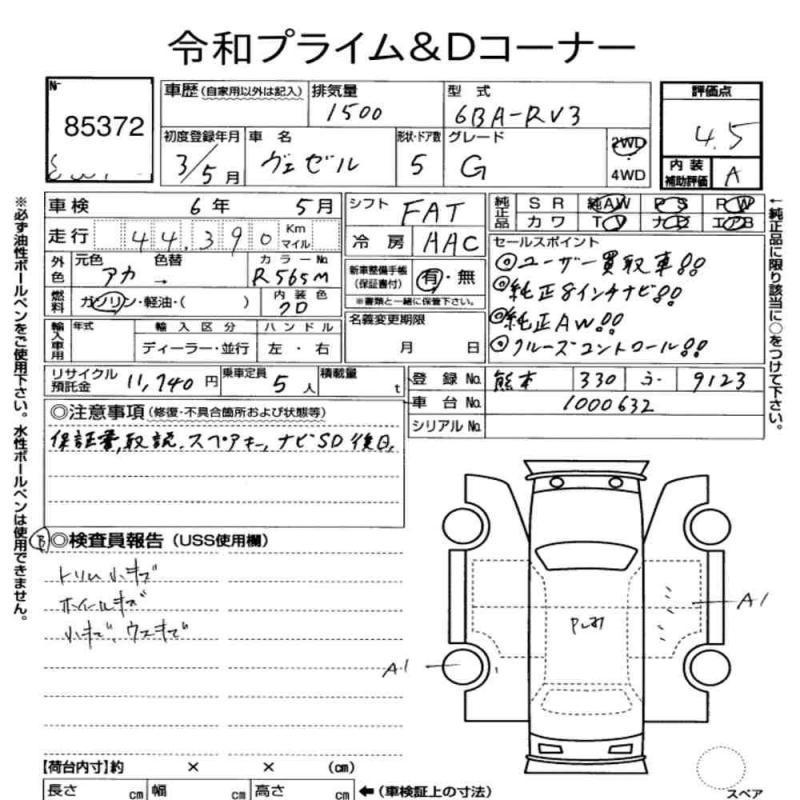 令和プライム&Dコーナー
No.
85372
車歴 (自家用以外は記入)
排気量
1500
型式
6BA-RV3
評価点
4.5
初度登録年月
3/5月
車名
ヴェゼル
形状・ドア数
5
グレード
G
2WD
4WD
内装
補助評価
A
※必ず油性ボールペンをご使用下さい。水性ボールペンは使用できません。
車検 6年 5月
シフト FAT
純正品
SR 純AW PS PW
カワ TV ナビ エアB
←純正品に限り該当に○をつけて下さい。
走行 44,390 Km マイル
冷房 AAC
セールスポイント
◎ユーザー買取車!!
◎純正8インチナビ!!
◎純正AW!!
◎クルーズコントロール!!
外色
元色 色替
アカ →
カラーNo.
R565M
新車整備手帳
(保証書付)
有・無
※書類と一緒に保管下さい。
燃料
ガソリン・軽油・( )
内装色
クロ
名義変更期限
月 日
輸入車用
年式
輸入区分
ハンドル
ディーラー・並行
左・右
リサイクル
預託金
11,740円
乗車定員
5人
積載量
t
登録No. 熊本 330 ふ 9123
車台No. 1000632
シリアルNo.
◎注意事項 (修復・不具合箇所および状態等)
保証書,取説,スペアキー,ナビSD後日,
◎検査員報告 (USS使用欄)
トリム小キズ
ホイールキズ
小キズ、ウスキズ
A1
A1
【荷台内寸】約 × × (cm)
長さ cm 幅 cm 高さ cm ←(車検証上の寸法)
スペア